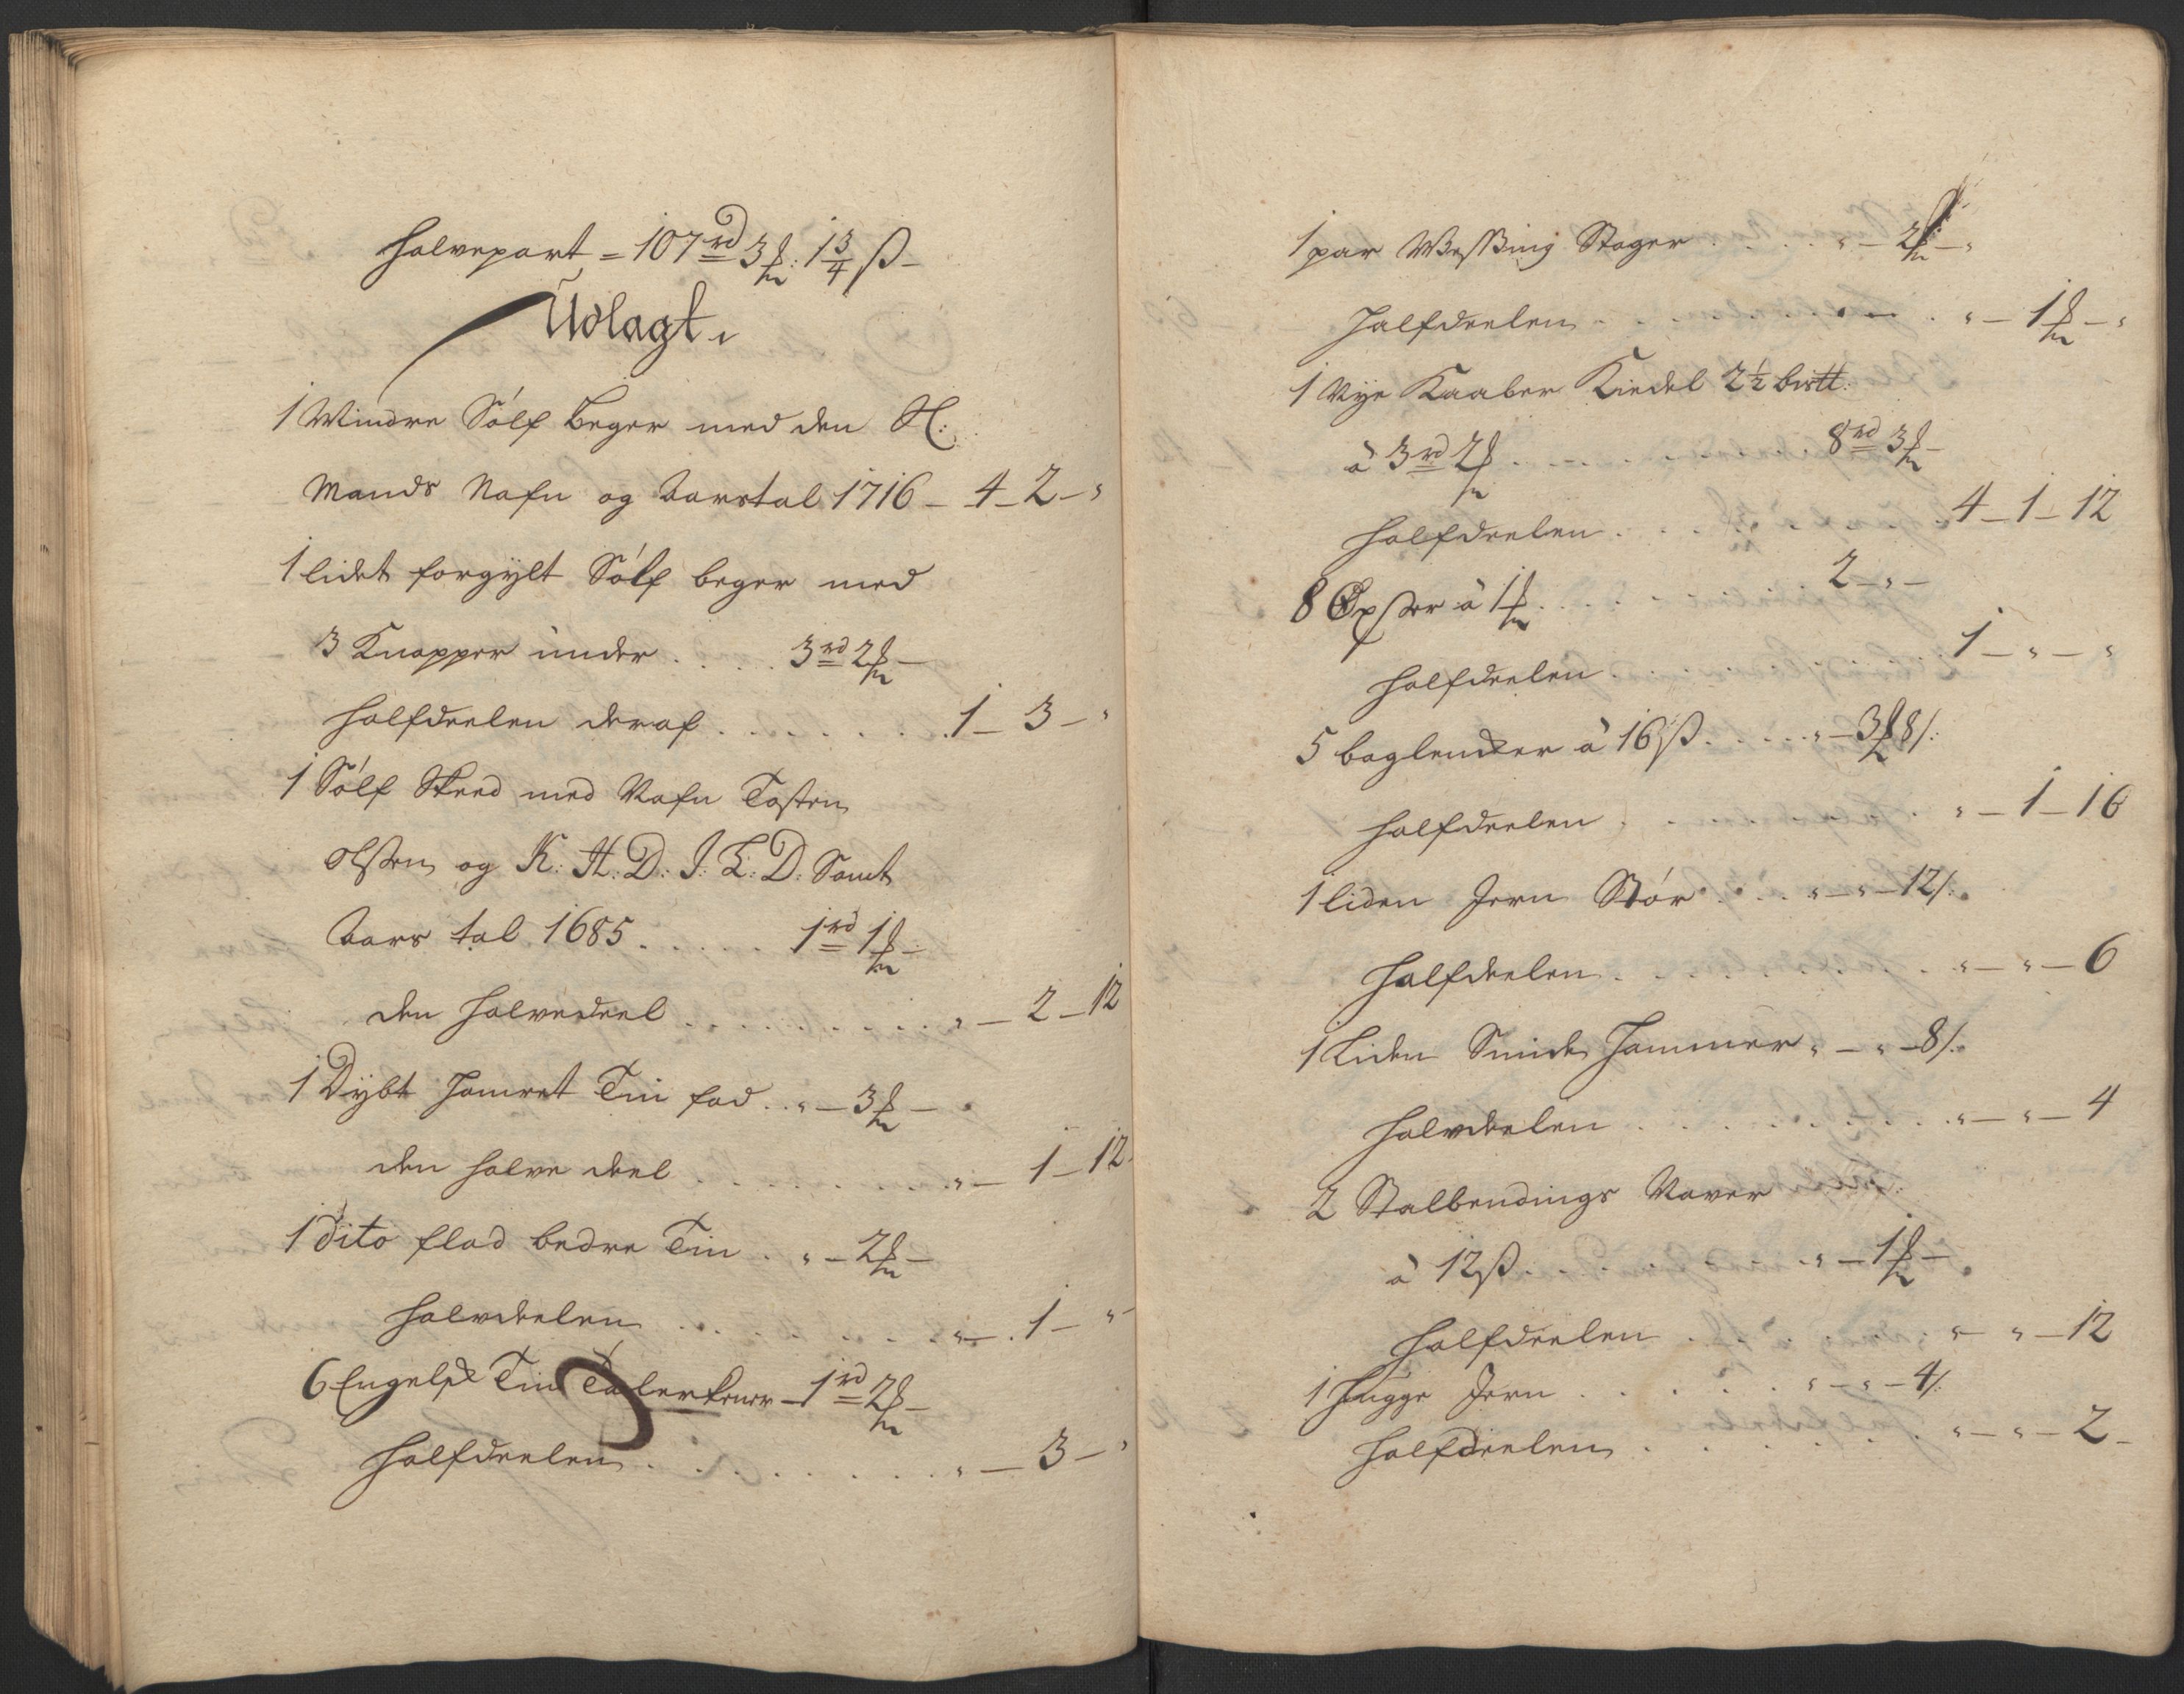 halvepart = 107 rd 3 ℳ: 1 3/4 ß –
Udlagt.
1 Mindre Sólf Beger med den S:
Mands Nafn og Aarstal 1716 – 4 – 2 – "
1 lidet forgÿlt Sólf beger med
3 Knapper under . . . . 3 rd 2 ℳ –
halfdeelen deraf . . . . . . . 1 – 3 – "
1 Sólf Skeed med Nafn Tosten
Olsen og K: H: D: I: L: D: Samt
Aars tal 1685 . . . . . . 1 rd 1 ℳ –
den halvedeel . . . . . . . . . " – 2 – 12
1 Dÿbt Hamret Tin fad . . " – 3 ℳ –
den halve deel . . . . . . . . " – 1 – 12
1 Dito flad bedre Tin . . " – 2 ℳ –
halvdeelen . . . . . . . . " – 1 – "
6 Engelsk Tin Talerkener – 1 rd 2 ℳ –
halfdeelen . . . . . . . . . " – 3 – "
1 par Messing Stager . . . . . " – 2 ℳ – "
Halfdeelen . . . . . . . . . " – 1 ℳ – "
1 Nye Kaaber Kiedel 2½ bis℔:
à 3 rd 2 ℳ . . . . . . . . 8 rd 3 ℳ –
halfdeelen . . . . . . . 4 – 1 – 12
8 Øxser à 1 ℳ . . . . . . . 2 – " –
halfdeelen . . . . . . . . 1 – " – "
5 baglencker à 16 ß . . . . . " – 3 ℳ 8 /:
halfdeelen . . . . . . . . " – 1 – 16
1 liden Jern Stór . . . . " – " – 12 /:
Halfdeelen . . . . . . . . . " – " – 6
1 Liden Smide Hammer " – " – 8 /:
halvdeelen . . . . . . . . . " – " – 4
2 Stalbendings Naver
à 12 ß . . . . . . . . . " – 1 ℳ –
Halfdeelen . . . . . . . " – " – 12
1 Hugge Jern . . . . . . " – " – 4 /:
Halfdeelen . . . . . . . " – " – 2 –